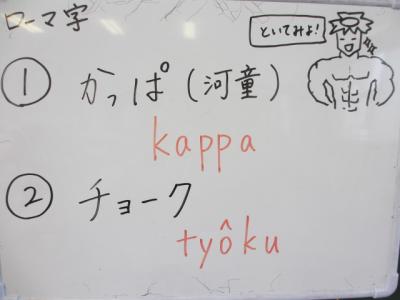 ローマ字
といてみよ!
① かっぱ (河童)
kappa
② チョーク
tyôku